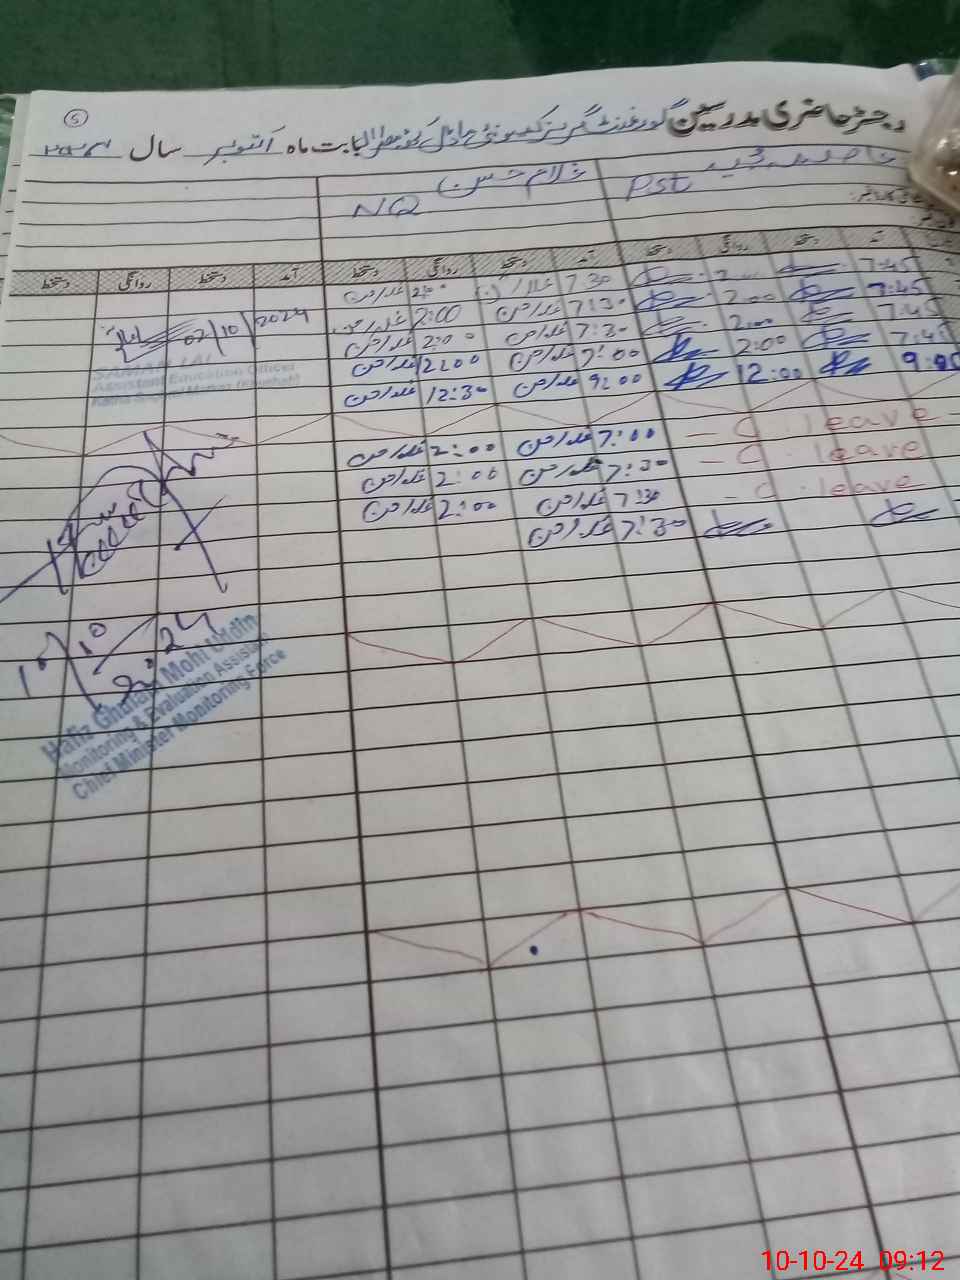 5
رجسٹر حاضری مدرسین گورنمنٹ گرلز کمیونٹی ماڈل بابت ماہ اکتوبر سال ۲۰۲۴
PST
غلام حسن
NQ
آمد دستخط روانگی دستخط آمد دستخط روانگی دستخط آمد دستخط روانگی دستخط
7:45 7:30 غلام حسن 2:00 غلام حسن
7:45 2:00 7:30 غلام حسن 2:00 غلام حسن
7:45 2:00 7:30 غلام حسن 2:00 غلام حسن
7:45 2:00 7:00 غلام حسن 2:00 غلام حسن
9:00 12:00 9:00 غلام حسن 12:30 غلام حسن
02/10/2024
SAMAR LAL
Assistant Education Officer
C. leave 7:00 غلام حسن 2:00 غلام حسن
C. leave 7:30 غلام حسن 2:00 غلام حسن
C. leave 7:30 غلام حسن 2:00 غلام حسن
7:30 غلام حسن
10/10/24
Hafiz Ghulam Mohi Uddin
Monitoring & Evaluation Assistant
Chief Minister Monitoring Force
10-10-24 09:12